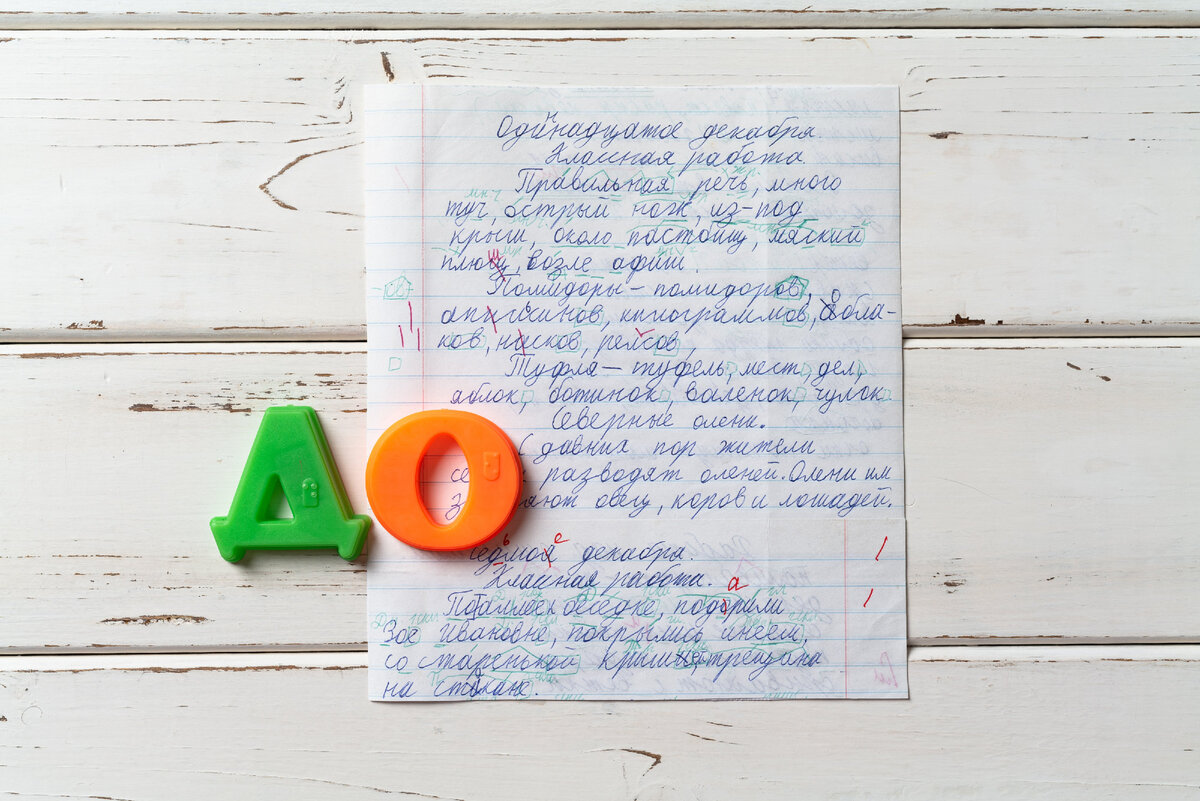 Одиннадцатое декабря.
Классная работа.
Правильная речь, много
туч, острый нож, из-под
крыш, около пастбищ, мяский
плющ, возле афиш.
Помидоры – помидоров,
апильсинов, килограммов, обла-
ков, носков, рельсов,
Туфля – туфель, мест, дел,
яблок, ботинок, валенок, чулок.
Северные олени.
С давних пор жители
се разводят оленей. Олени им
з яют овец, коров и лошадей.
ДО
седьмое декабря.
Класная работа.
беседке, подарили
Зое Ивановне, покрылись инеем,
со старенькой крыши, трещина
на стакане.